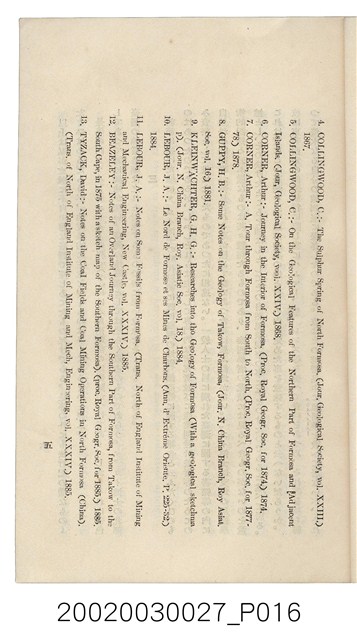 4. COLLINGWOOD, C.;- The Sulphur Spring of North Formosa, (Jour, Geological Society, vol, XXIII.)
1867.
5. COLLINGWOOD, C.;- On the Geological Features of the Northern Part of Formosa and Adjacent
Islands, (Jour, Geological Society, vol, XXIV.) 1868.
6. CORNER, Arthur:- Journey in the Interior of Formosa, (Proc, Royal Geogr, Soc, for 1874.) 1874.
7. CORNER, Arthur:- A, Tour through Formosa from South to North, (Proc, Royal Geogr, Soc, for 1877-
78.) 1878.
8. GUPPY, H, B.:- Some Notes on the Geology of Takow, Formosa, (Jour, N, China Branch, Roy Asiat,
Soc, vol, 16.) 1881.
9. KLEINWACHTER, G, H, G.:- Researches into the Geology of Formosa (With a geological sketchma
p). (Jour, N, China Branch, Roy, Asiatic Soc, vol, 18.) 1884,
10. LEBOUR, J, A.;- Le Nord de Formose et ses Mines de Charbora, (Ann, d' Extrême Oriente, P, 225-32.)
1884.
11. LEBOUR, J, A.;- Notes on Some Fossils from Formosa, (Trans, North of England Institute of Mining
and Mechanical Engineering, New Castle, vol, XXXIV.) 1885.
12. BEAZELEY:- Notes of an Overland Journey through the Southern Part of Formosa, from Takow to the
South Cape, in 1875 with a sketch map of the Southern Formosa), (proc, Royal Geogr, Soc, for 1885.) 1885
13. TYZACK, David:- Notes on the Coal Fields and Coal Mining Operations in North Formosa (China),
(Trans, of North of England Institute of Mining and Mech, Engineering, vol, XXXIV.) 1885.
20020030027_P016